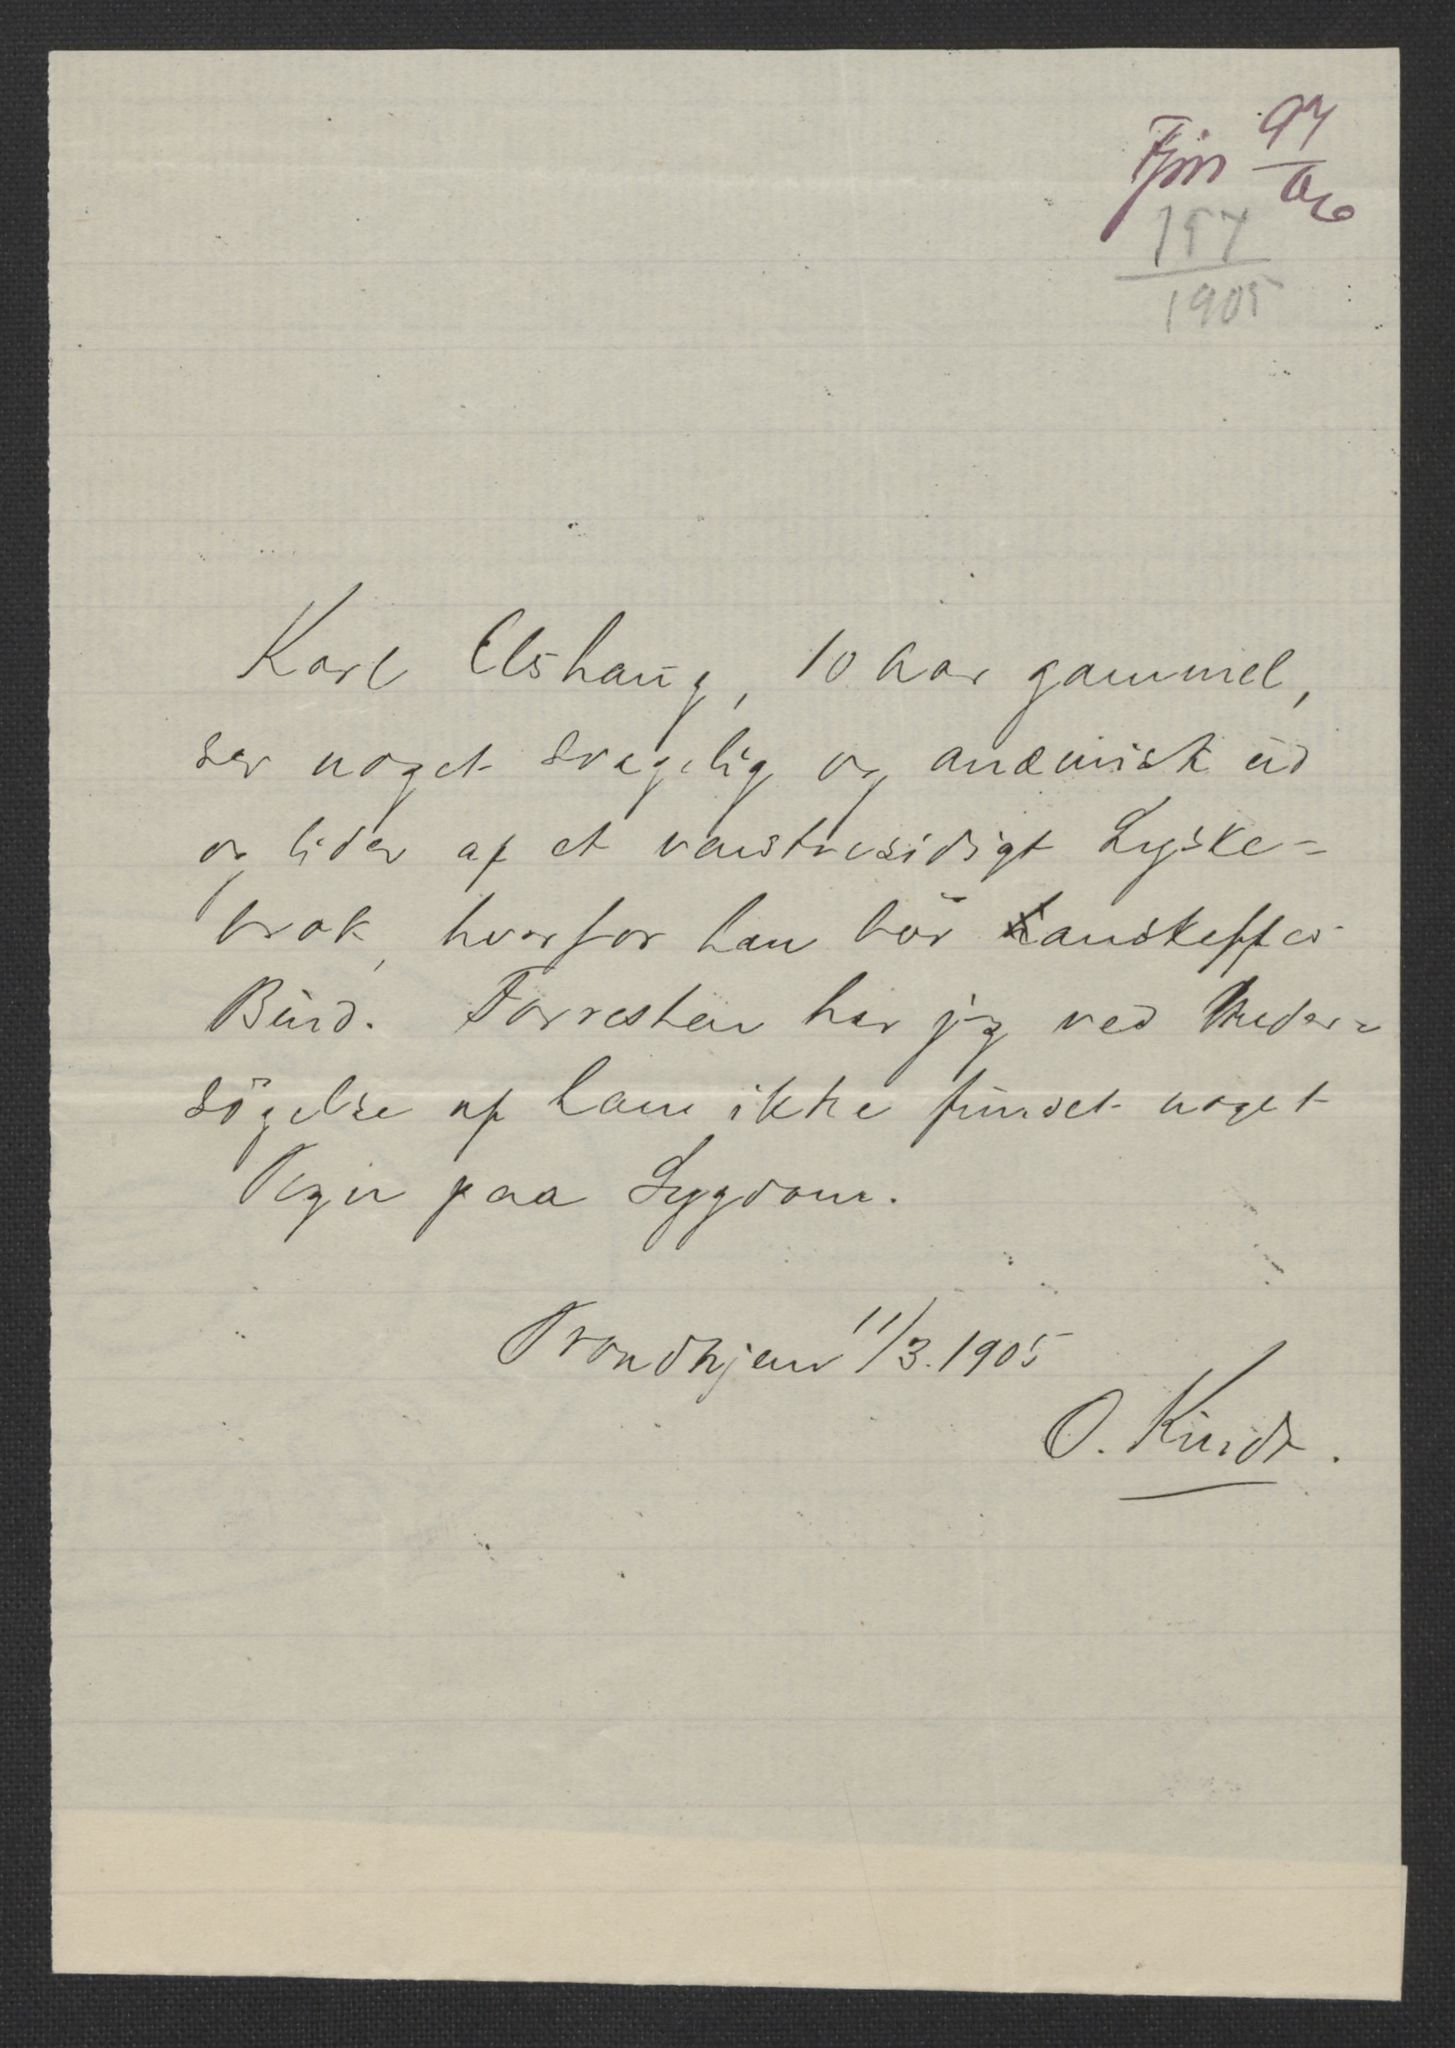 Fjm 97/06
197
1905
Karl Elshaug, 10 Aar gammel,
ser noget svagelig og anæmisk ud
og lider af et venstresidigt Lyske-
brok, hvorfor han bör anskaffes
Bind. Forresten har jeg ved Under-
sögelse af ham ikke fundet noget
Tegn paa Sygdom.
Trondhjem 11/3. 1905
O. Kindt.